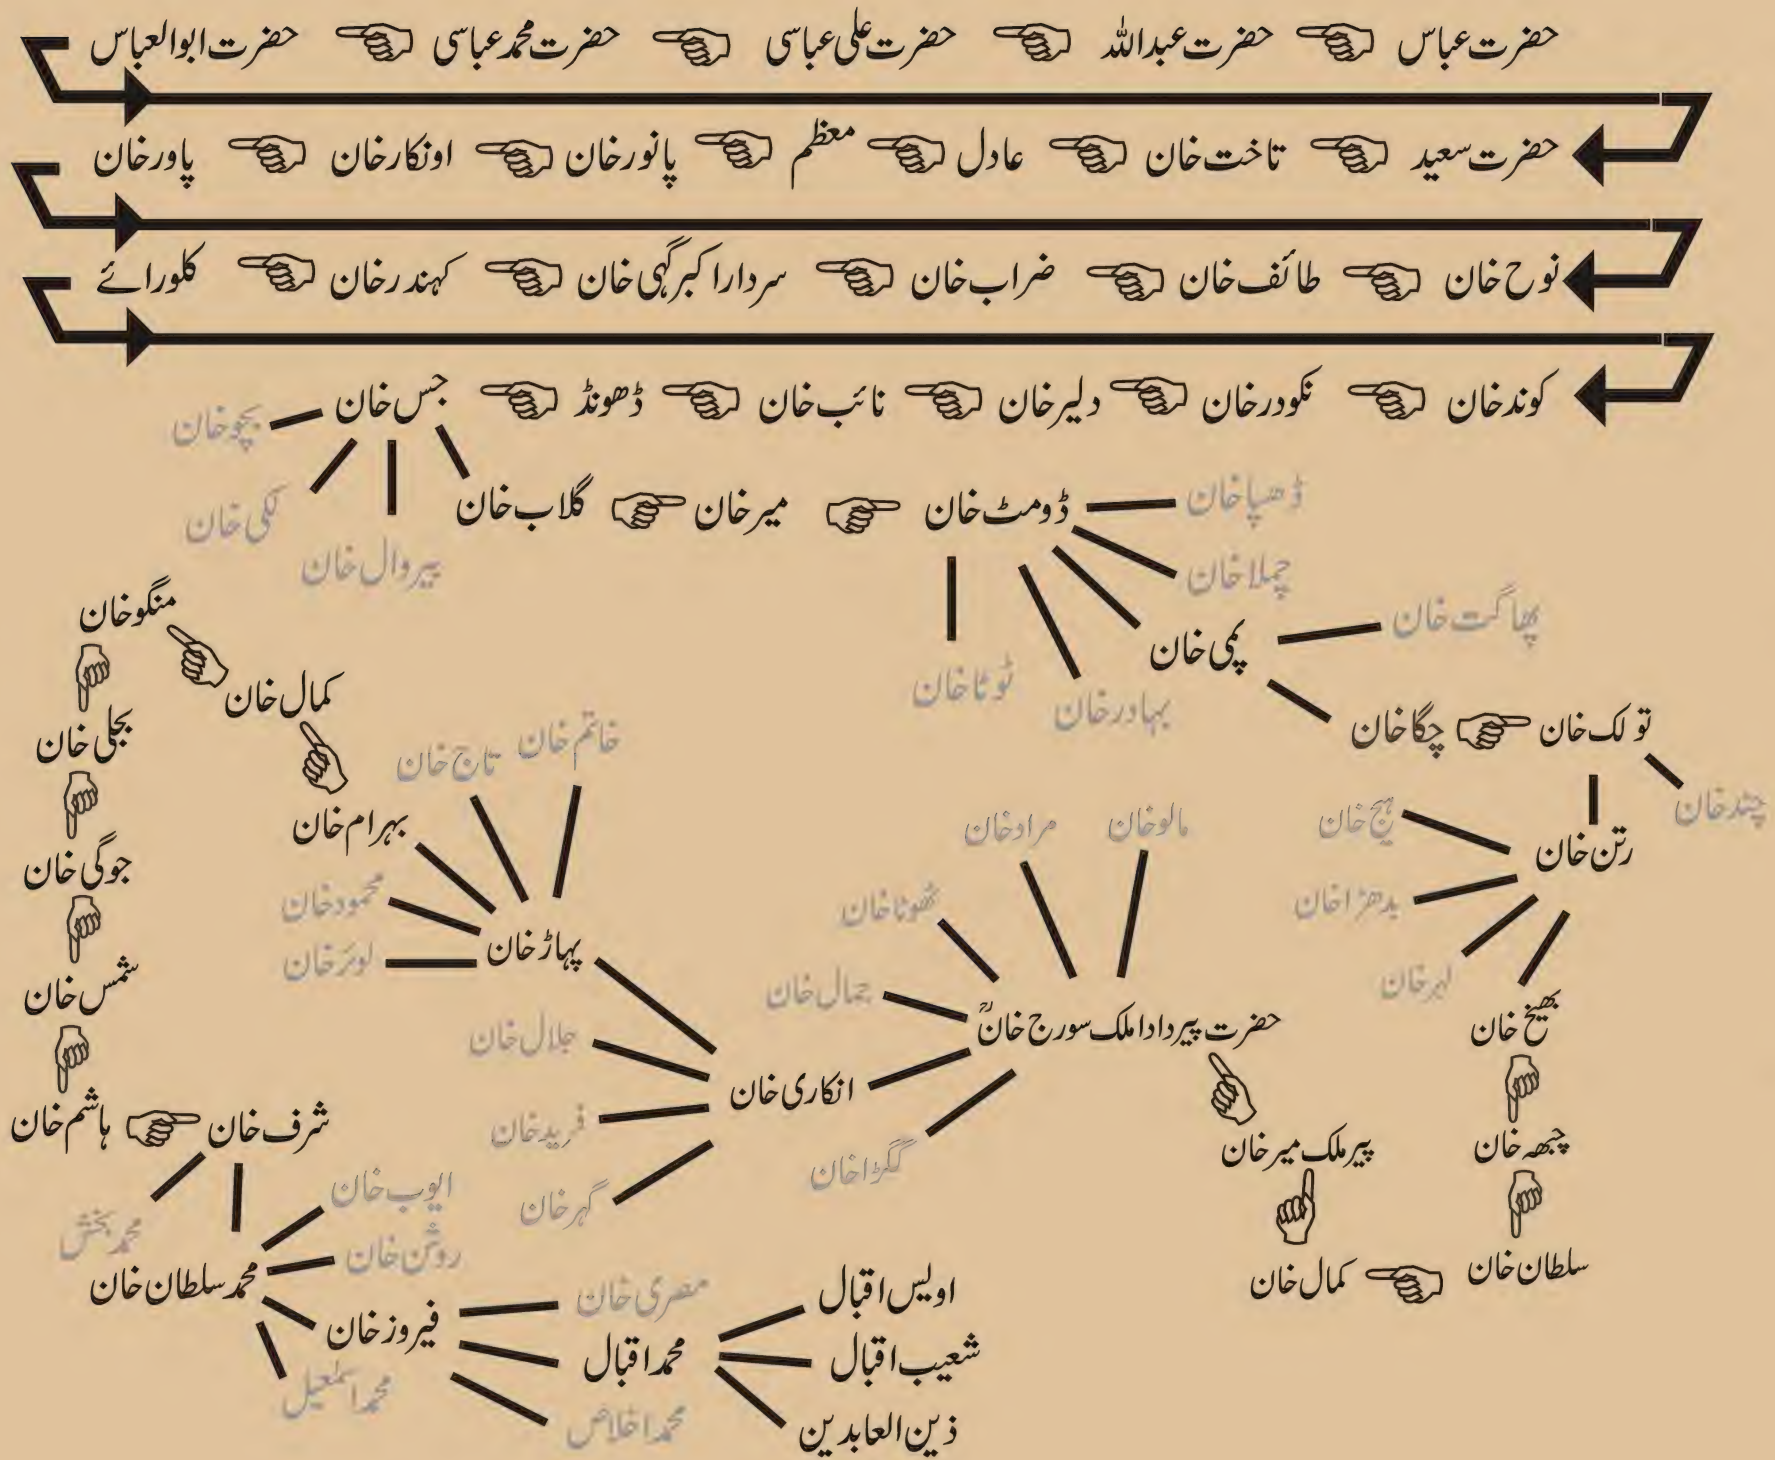 حضرت عباس حضرت عبداللہ حضرت علی عباسی حضرت محمد عباسی حضرت ابوالعباس
حضرت سعید تاخت خان عادل معظم پانور خان اونکار خان پاور خان
نوح خان طائف خان ضراب خان سردار اکبر گہی خان کہندر خان کلورائے
کوند خان نکودر خان دلیر خان نائب خان ڈھونڈ جس خان
بچو خان
لکی خان
پیروال خان
گلاب خان میر خان ڈومٹ خان
ڈھپا خان
چملا خان
پمی خان
بہادر خان
ٹوٹا خان
پھاگت خان
چگا خان تولک خان
چند خان
رتن خان
بیج خان
بدھڑا خان
لہر خان
بھیخ خان
چبھہ خان
سلطان خان
کمال خان
پیر ملک میر خان
حضرت پیر دادا ملک سورج خانؒ
مالو خان
مراد خان
ٹھوٹا خان
جمال خان
انکاری خان
گکڑا خان
پہاڑ خان
جلال خان
فرید خان
گہر خان
خاتم خان
تاج خان
بہرام خان
محمود خان
لوئر خان
کمال خان
منگو خان
بجلی خان
جوگی خان
شمس خان
ہاشم خان شرف خان
محمد بخش
محمد سلطان خان
ایوب خان
روشن خان
فیروز خان
محمد اسمٰعیل
مصری خان
محمد اقبال
محمد اخلاص
اویس اقبال
شعیب اقبال
ذین العابدین